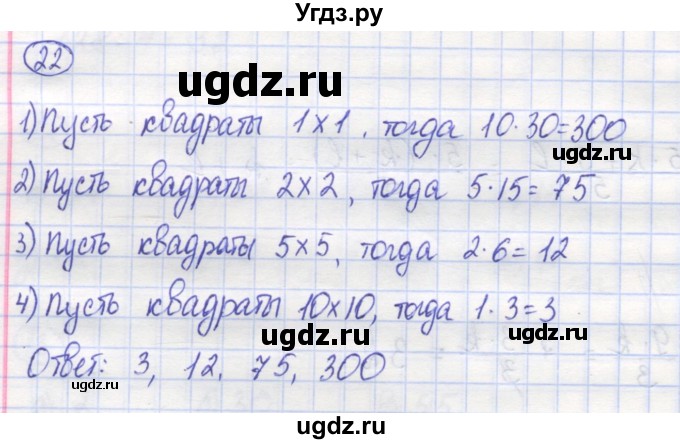 Угдз.ру
22
ugdz.ru
1) Пусть квадраты 1×1, тогда 10·30=300
ugdz.ru
2) Пусть квадраты 2×2, тогда 5·15=75
ugdz.ru
3) Пусть квадраты 5×5, тогда 2·6=12
ugdz.ru
4) Пусть квадраты 10×10, тогда 1·3=3
ugdz.ru
ugdz.ru
Ответ: 3, 12, 75, 300
ugdz.ru
ugdz.ru